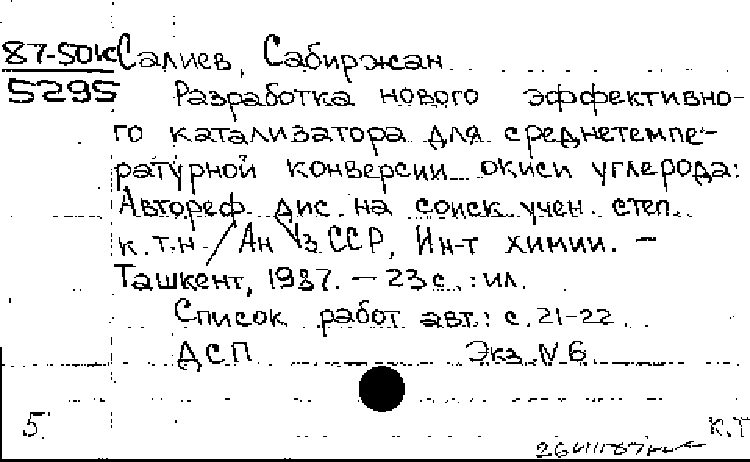 87-50к Салиев, Сабиржан
5295 Разработка нового эффективно-
го катализатора для среднетемпе-
ратурной конверсии окиси углерода:
Автореф. дис. на соиск. учен. степ.
к.т.н. / Ан УзССР, Ин-т химии. -
Ташкент, 1987. - 23 с. : ил.
Список работ авт.: с. 21-22.
ДСП Экз. N 6
5. К.Т